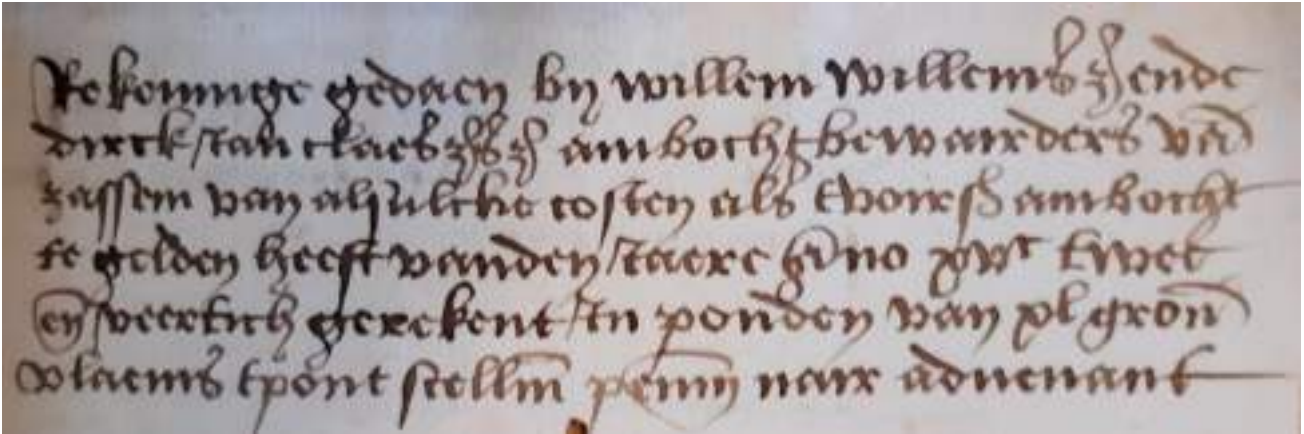 Rekeninge gedaen by willem willems z ende
dirck Jan claes zs z ambochtbewairders vã
zassem van alzulcke costen als tvoirs ambocht
te gelden heeft vanden Jaere Ano xvc twee
en veertich gerekent In ponden van xl gron
vlaems tpont stellm penn nair advenant